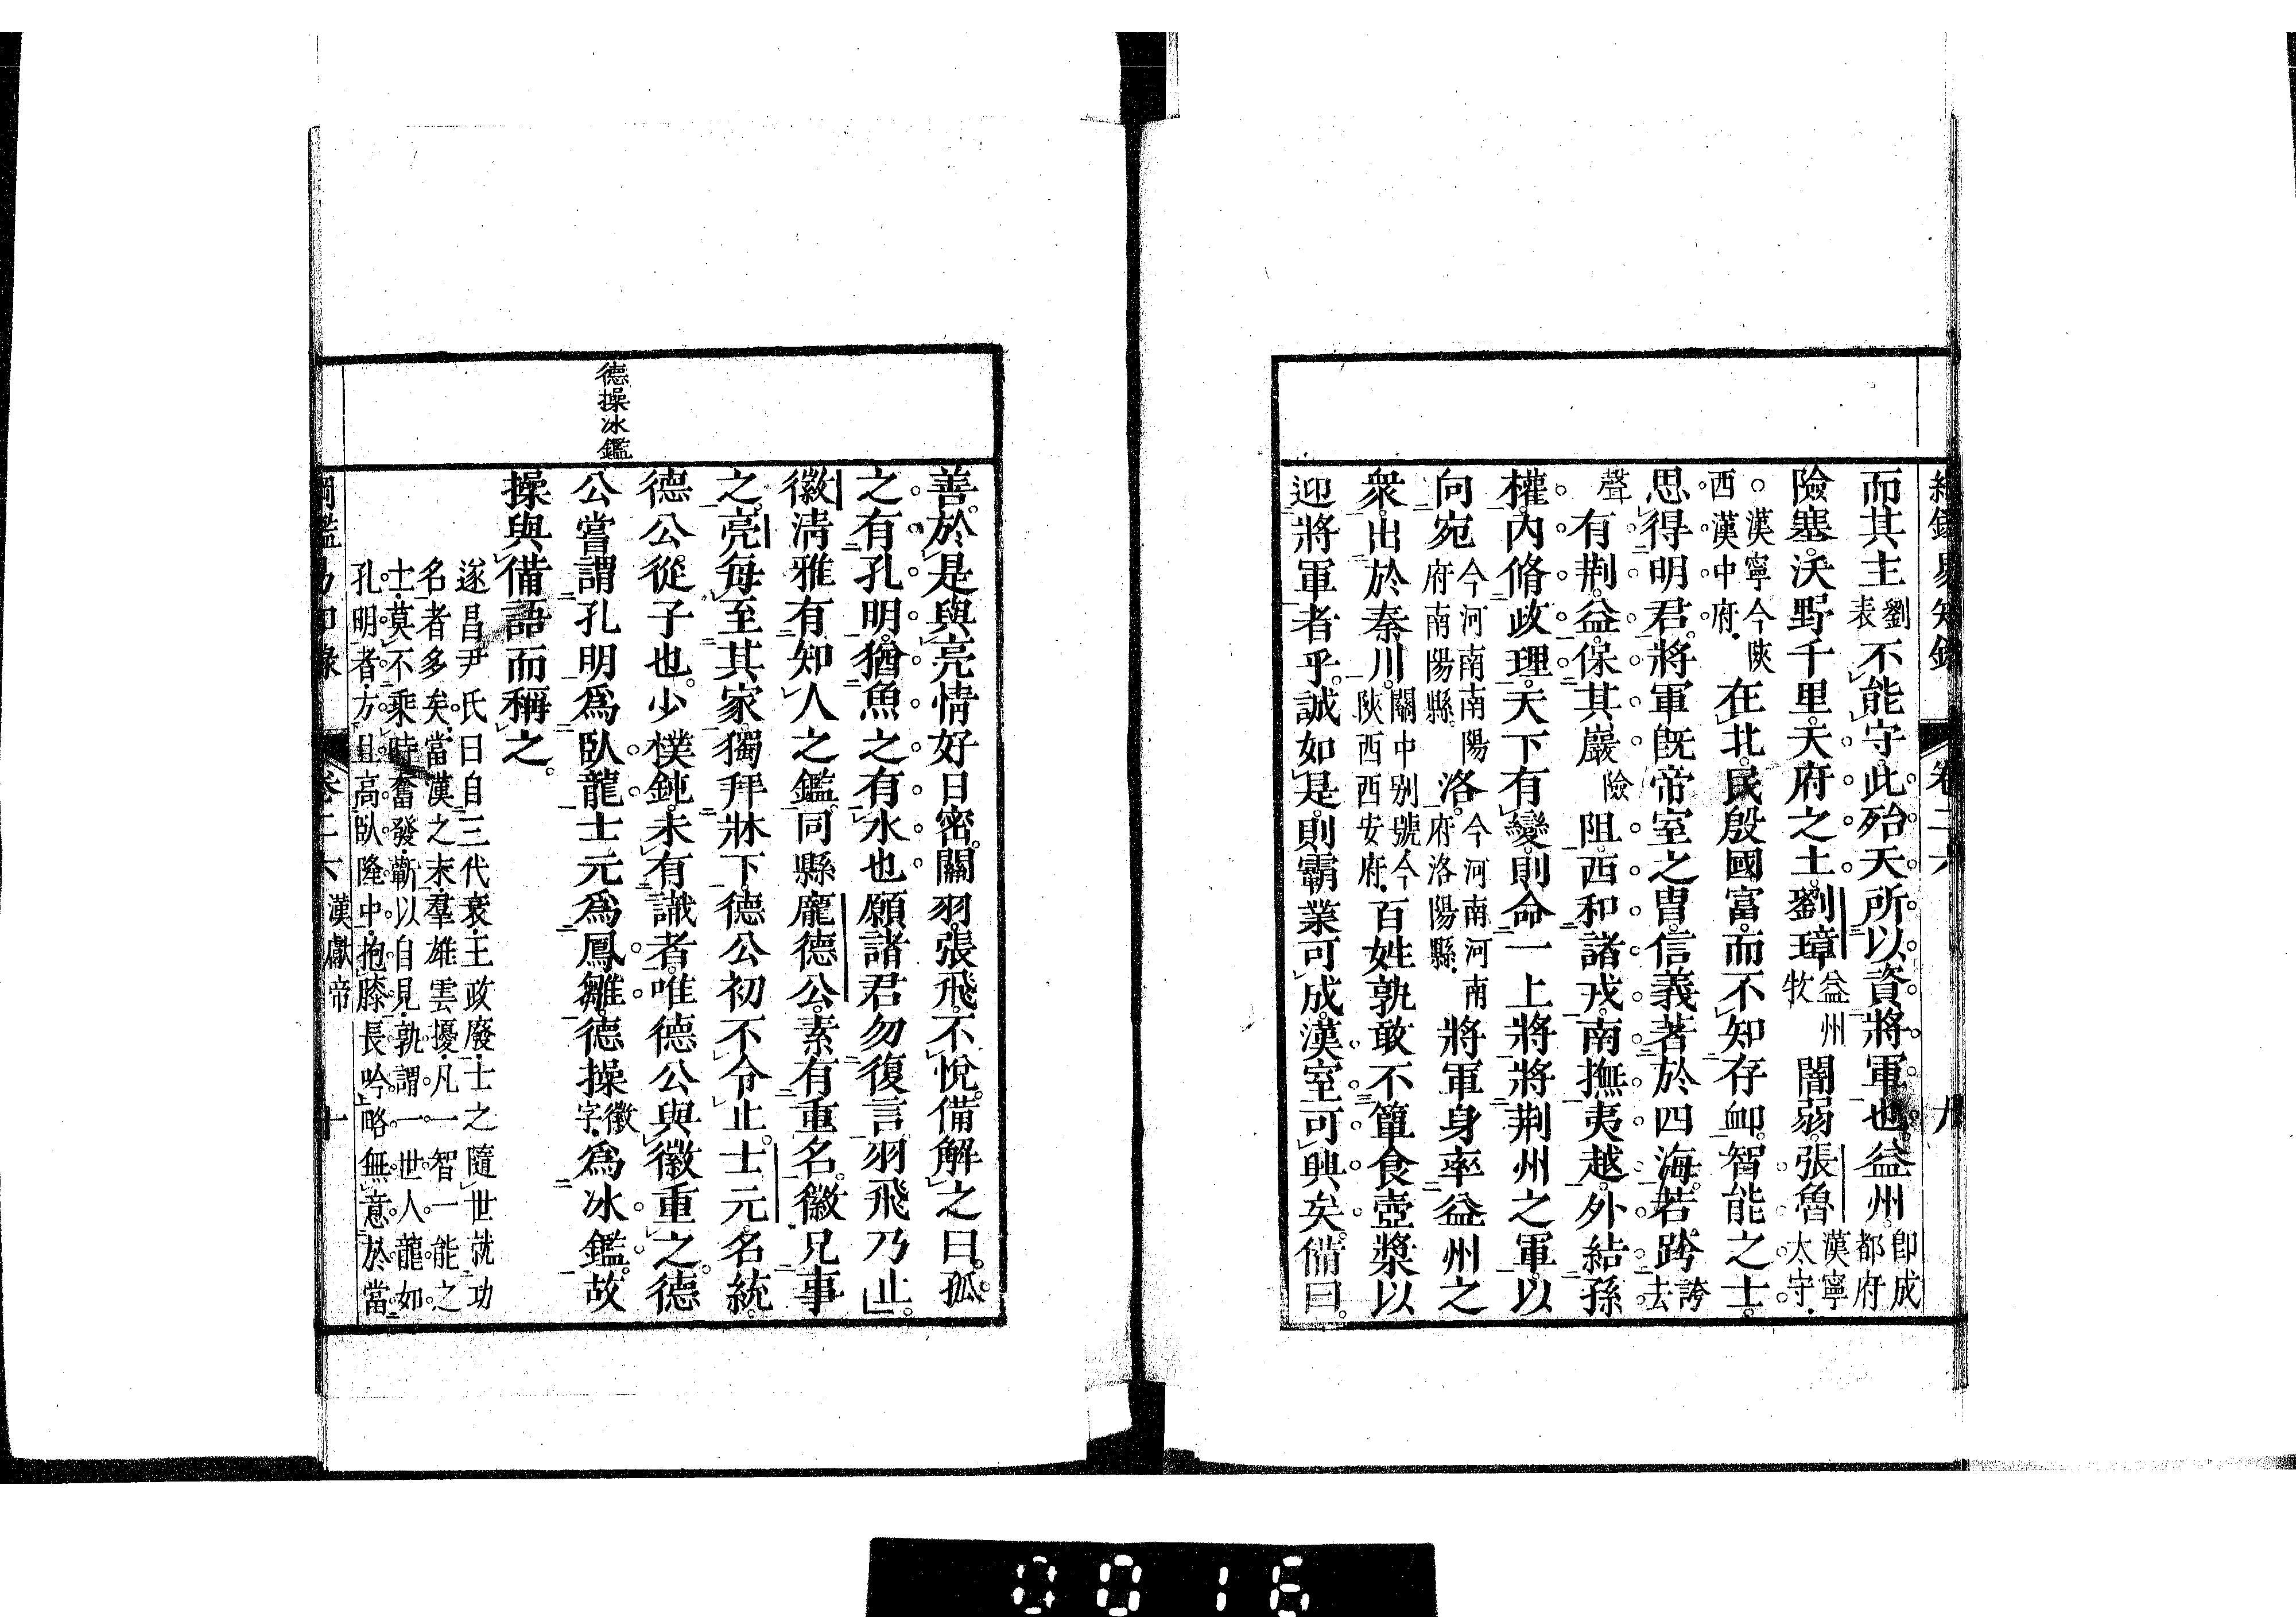 綱鑑易知錄　卷二六　九
而其主劉表不能守。此殆天所以資將軍也。益州。即成都府
險塞。沃野千里。天府之土。劉璋益州牧闇弱。張魯漢寧太守．
。漢寧今陝西漢中府．在北。民殷國富。而不知存卹。智能之士。
思得明君。將軍既帝室之冑。信義著於四海。若跨誇去
聲有荆。益。保其巖險阻。西和諸戎。南撫夷越。外結孫
權。內脩政理。天下有變。則命一上將將荆州之軍。以
向宛今河南南陽府南陽縣。洛。今河南河南府洛陽縣．將軍身率益州之
衆。出於秦川。關中别號今陝西西安府．百姓孰敢不簞食壺漿以
迎將軍者乎。誠如是。則霸業可成。漢室可興矣。備曰。
善。於是與亮情好日密。關羽。張飛。不悅。備解之曰。孤
之有孔明。猶魚之有水也。願諸君勿復言。羽飛乃止。
徽淸雅有知人之鑑。同縣龐德公。素有重名。徽兄事
之。亮每至其家。獨拜牀下。德公初不令止。士元。名統。
德公。從子也。少樸鈍。未有識者。唯德公與徽重之。德
德操冰鑑
公嘗謂孔明爲臥龍。士元爲鳳雛。德操徽字．爲冰鑑。故
操與備語而稱之。
遂昌尹氏曰自三代衰．王政廢．士之隨世就功
名者多矣．當漢之末．羣雄雲擾．凡一智一能之
士．莫不乘時奮發．蘄以自見．孰謂一世人龍如
孔明者．方且高臥隆中．抱膝長吟．略無意於當
綱鑑易知錄　卷二六　漢獻帝　十
0016